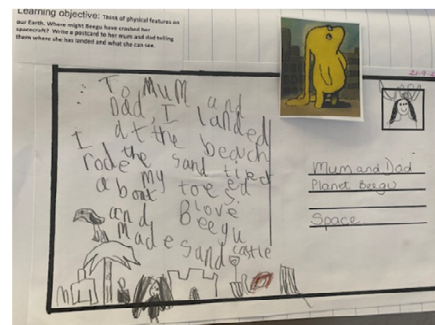 Learning objective: Think of physical features on
our Earth. Where might Beegu have crashed her
spacecraft? Write a postcard to her mum and dad telling
them where she has landed and what she can see.
To Mum and
Dad, I landed
at the beach
I rode the sand
a boat my toes
and Blove
Beegu
made sand castle
Mum and Dad
Planet Beegu
Space